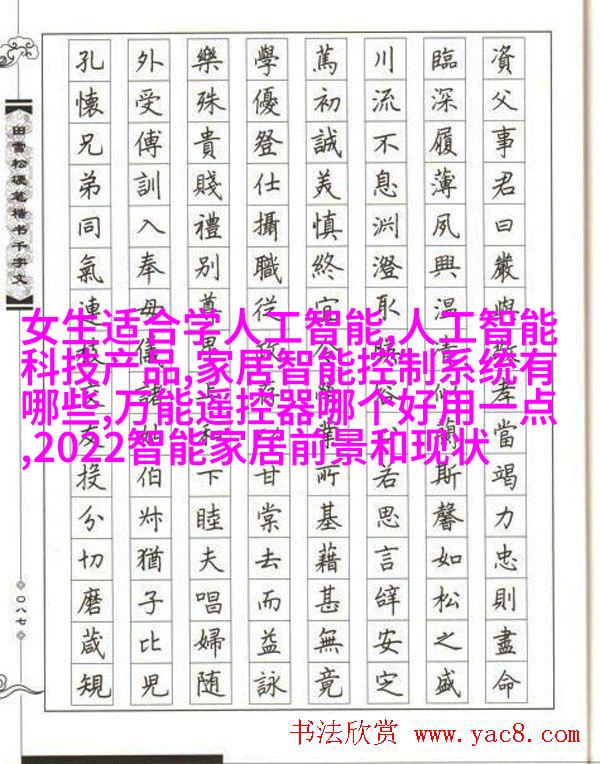 資父事君曰嚴與敬孝當竭力忠則盡命
臨深履薄夙興溫凊斯馨如松之盛
川流不息渊澄取若思言辭安定
篤初誠美慎終宜業所基藉甚無竟
學優登仕攝職從政甘棠去而益詠
樂殊貴賤禮別尊卑和下睦夫唱婦随
外受傅訓入奉母儀諸姑伯叔猶子比兒
孔懷兄弟同氣連枝交友投分切磨箴規
田雪松硬笔楷书千字文
〇八七
女生适合学人工智能,人工智能
科技产品,家居智能控制系统有
哪些,万能遥控器哪个好用一点
,2022智能家居前景和现状
书法欣赏 www.yac8.com